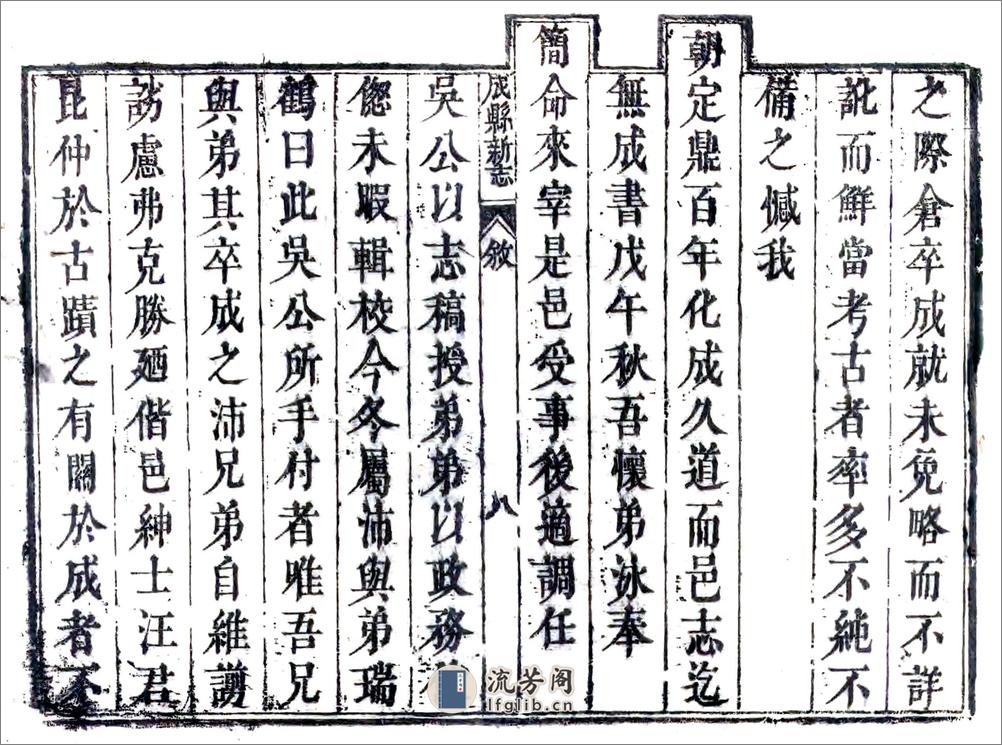 之際倉卒成就未免略而不詳
訛而鮮當考古者率多不純不
備之憾我
朝定鼎百年化成久道而邑志迄
無成書戊午秋吾懷弟泳奉
簡命來宰是邑受事後適調任
成縣新志 敘 八
吳公以志稿授弟弟以政務
偬未暇輯校今冬屬沛與弟瑞
鶴曰此吳公所手付者唯吾兄
與弟其卒成之沛兄弟自維謭
慮弗克勝廼偕邑紳士汪君
昆仲於古蹟之有關於成者不
流芳阁
lfglib.cn